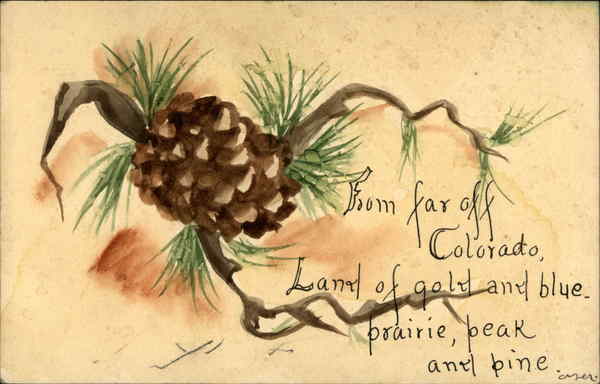 From far off
Colorado,
Land of gold and blue-
prairie, peak
and pine.